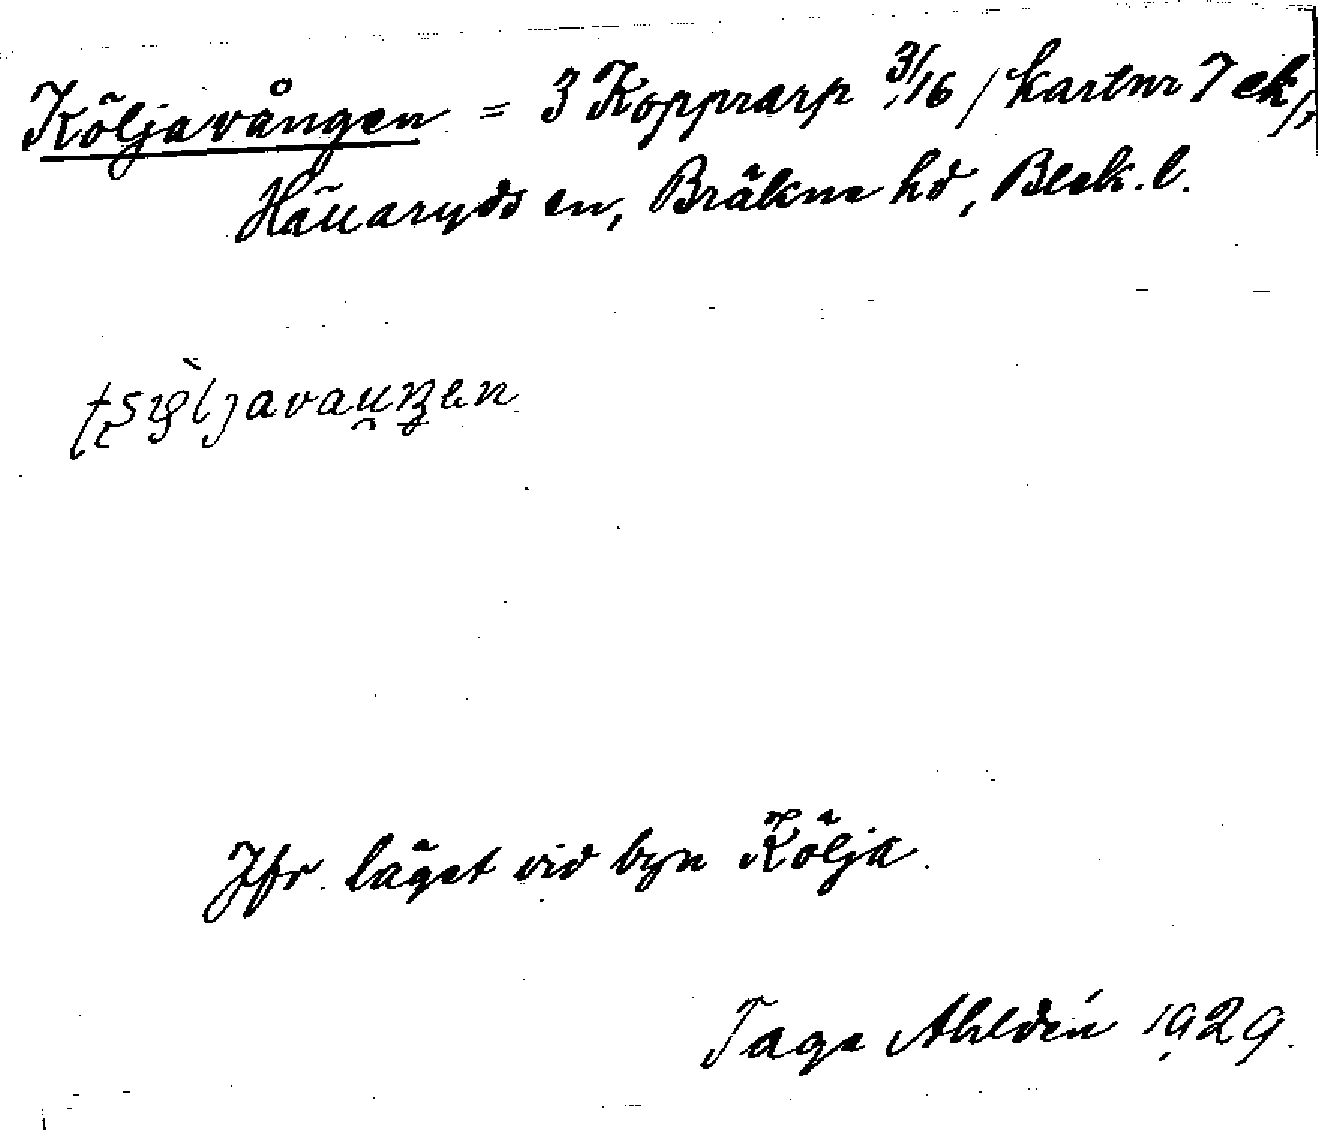 Köljavången = 3 Kopprarp 3/16 /kartnr 7 ek/,
Hällaryds sn, Bräkne hd, Blek. l.
Jfr läget vid byn Kölja.
Tage Ahldén 1929.